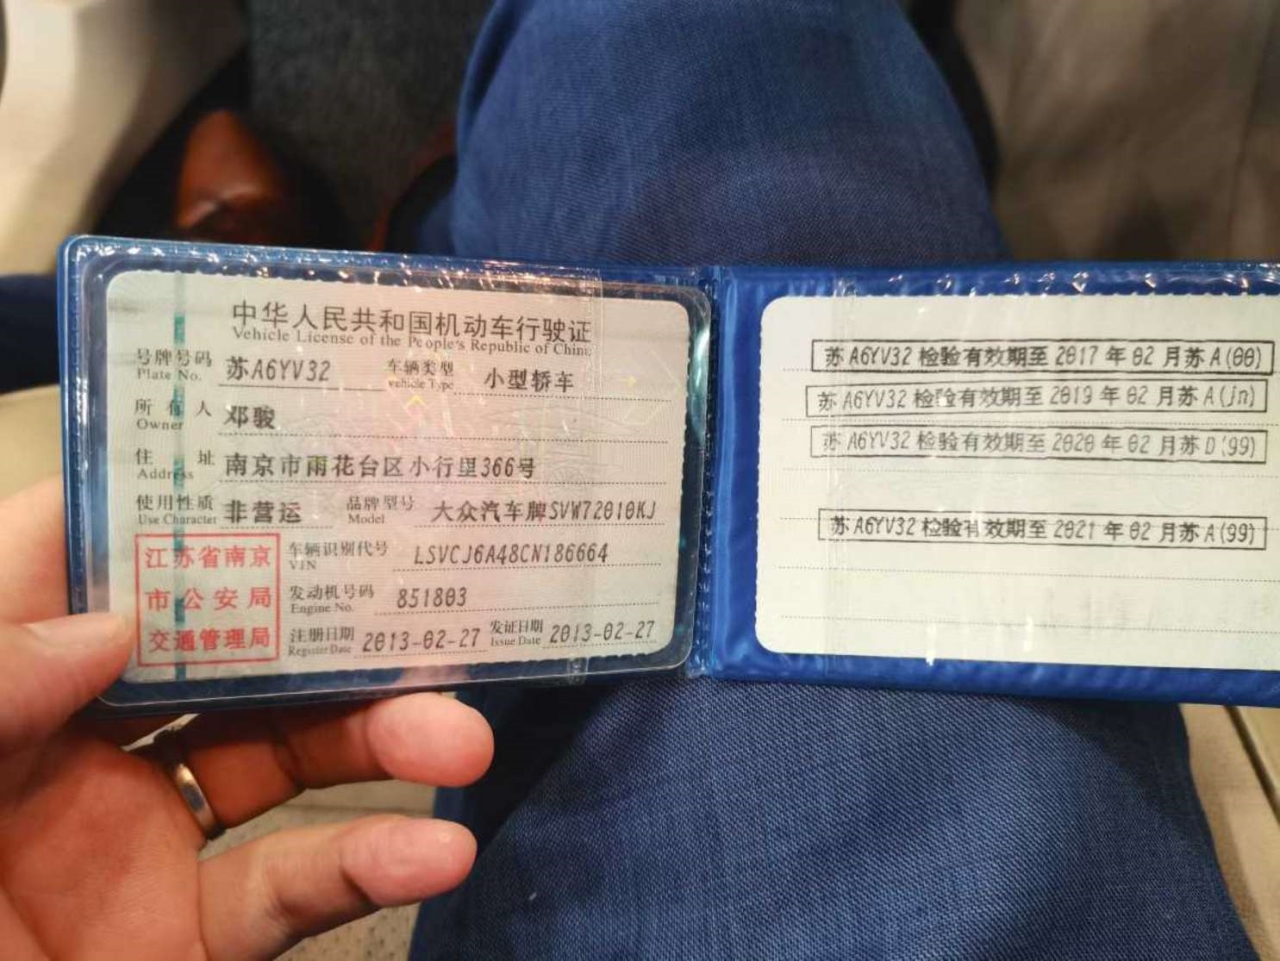 中华人民共和国机动车行驶证
Vehicle License of the People's Republic of China
号牌号码 苏A6YV32 车辆类型 小型轿车
Plate No. vehicle Type
所有人 邓骏
Owner
住址 南京市雨花台区小行里366号
Address
使用性质 非营运 品牌型号 大众汽车牌SVW72010KJ
Use Character Model
江苏省南京 车辆识别代号 LSVCJ6A48CN186664
VIN
市公安局 发动机号码 851803
Engine No.
交通管理局 注册日期 2013-02-27 发证日期 2013-02-27
Register Date Issue Date
苏A6YV32 检验有效期至 2017 年 02 月苏A(00)
苏A6YV32 检验有效期至 2019 年 02 月苏A(jn)
苏A6YV32 检验有效期至 2020 年 02 月苏D(99)
苏A6YV32 检验有效期至 2021 年 02 月苏A(99)